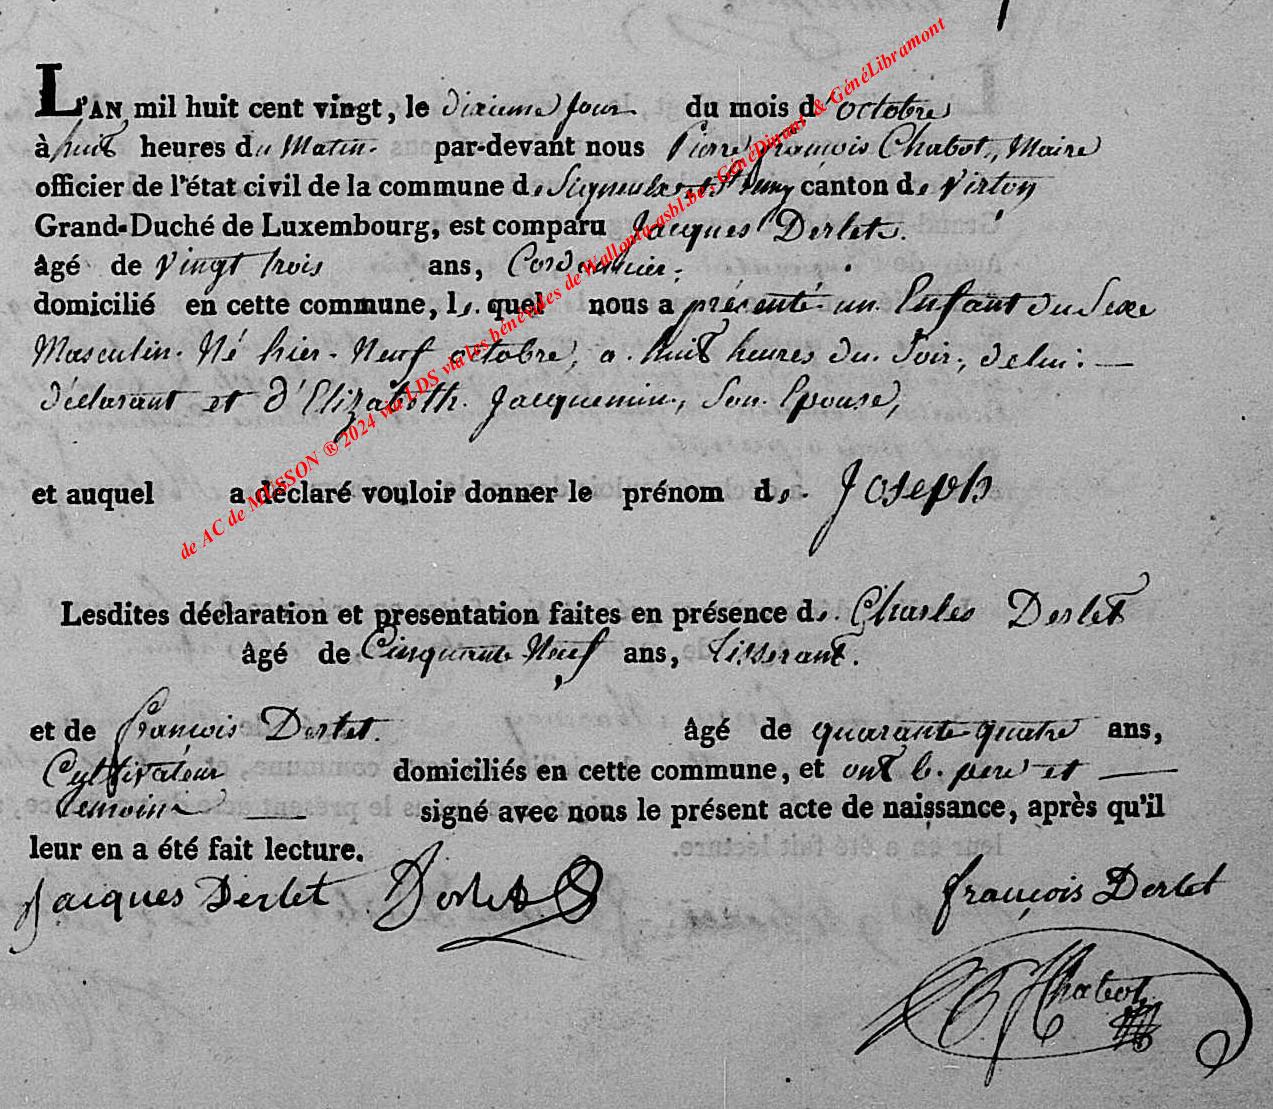 L'AN mil huit cent vingt, le dixieme jour du mois d'octobre
à huit heures du Matin. par-devant nous Pierre François Chabot, Maire
officier de l'état civil de la commune de Signeulx et canton de Virton
Grand-Duché de Luxembourg, est comparu Jacques Derlet.
âgé de vingt trois ans, Cordonnier.
domicilié en cette commune, le quel nous a présenté un Enfant du Sexe
Masculin. Né hier. Neuf octobre, a huit heures du Soir, de lui: —
déclarant et d'Elizabeth. Jacquemin, Son Epouse,
et auquel a déclaré vouloir donner le prénom de. Joseph
Lesdites déclaration et presentation faites en présence de. Charles Derlet
âgé de Cinquante Neuf ans, tisserant.
et de françois Derlet. âgé de quarante quatre ans,
Cultivateur domiciliés en cette commune, et ont le. pere et —
temoins — signé avec nous le présent acte de naissance, après qu'il
leur en a été fait lecture.
Jacques Derlet Derlet françois Derlet
Chabot
de AC de MUSSON ® 2024 via LDS via les bénévoles de Wallonia-asbl.be, GénéDinant & GénéLibramont